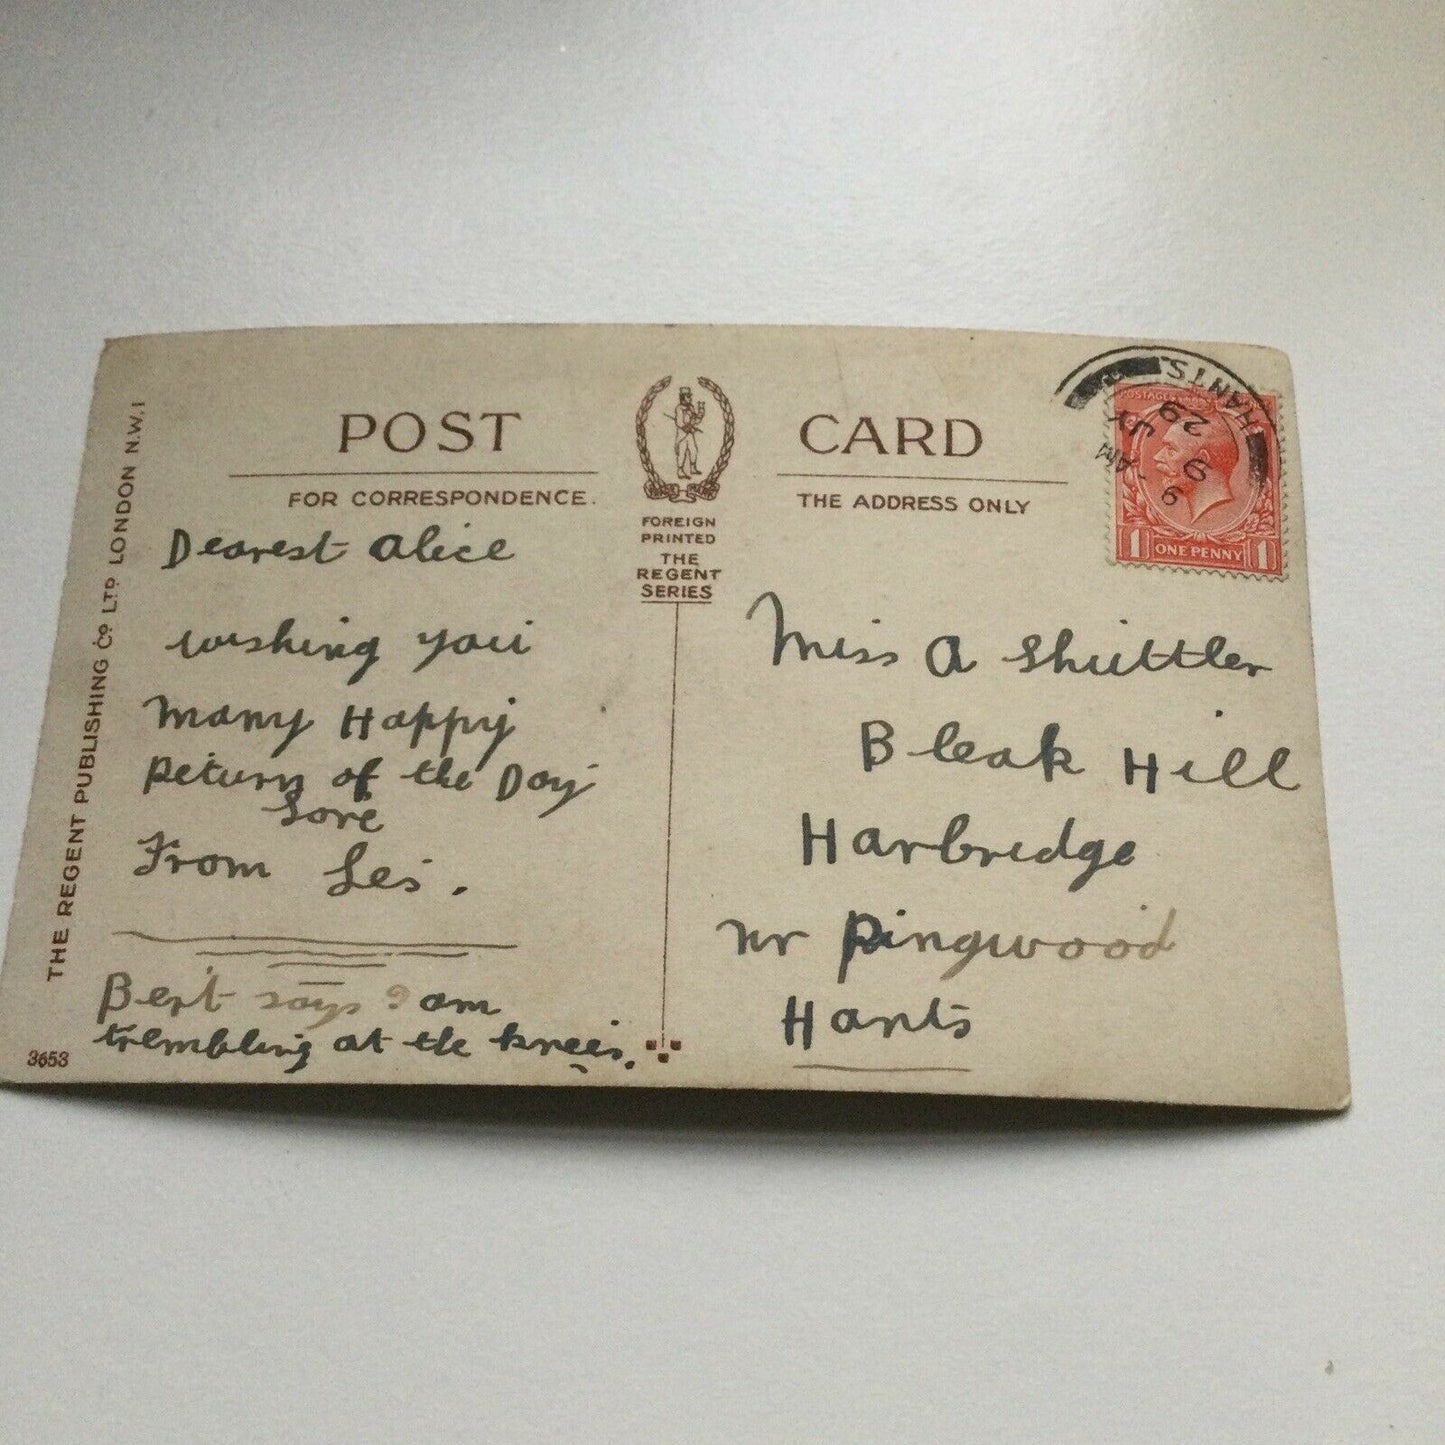 POST CARD
FOR CORRESPONDENCE.
THE ADDRESS ONLY
FOREIGN
PRINTED
THE
REGENT
SERIES
THE REGENT PUBLISHING Co LTD LONDON N.W.1
3653
Dearest Alice
wishing you
many Happy
Return of the Day
Love
From Les.
Bert says I am
trembling at the knees.
Miss A Shuttler
Bleak Hill
Harbridge
nr Ringwood
Hants
HANTS
9 AM
9 JY
29
1 ONE PENNY 1